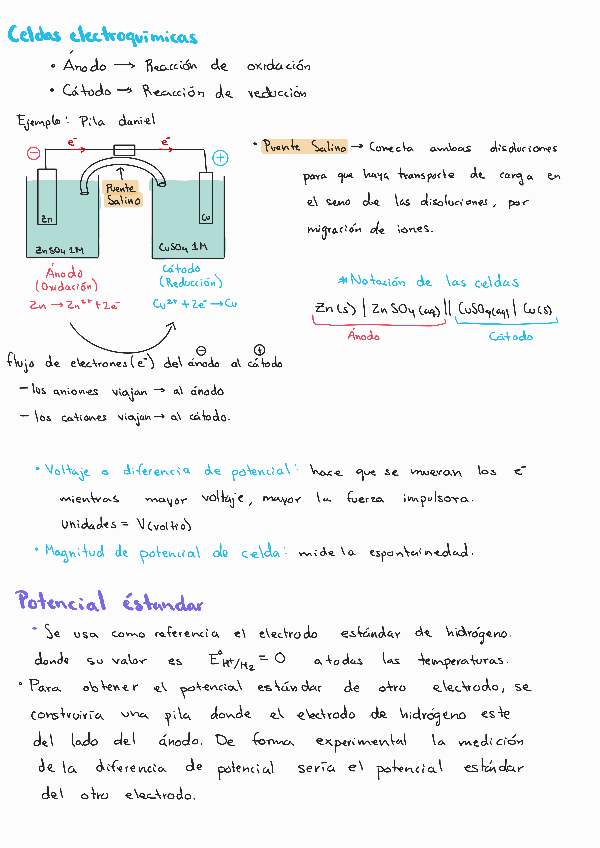 Celdas electroquímicas
• Ánodo → Reacción de oxidación
• Cátodo → Reacción de reducción
Ejemplo: Pila daniel
e⁻ e⁻
⊖ ⊕
Puente
Salino
Zn Cu
ZnSO₄ 1M CuSO₄ 1M
Ánodo
(Oxidación)
Zn → Zn²⁺ + 2e⁻
Cátodo
(Reducción)
Cu²⁺ + 2e⁻ → Cu
• Puente Salino → Conecta ambas disoluciones
para que haya transporte de carga en
el seno de las disoluciones, por
migración de iones.
* Notación de las celdas
Zn(s) | ZnSO₄(aq) || CuSO₄(aq) | Cu(s)
Ánodo Cátodo
⊖ ⊕
flujo de electrones (e⁻) del ánodo al cátodo
– los aniones viajan → al ánodo
– los cationes viajan → al cátodo.
• Voltaje o diferencia de potencial: hace que se muevan los e⁻
mientras mayor voltaje, mayor la fuerza impulsora.
Unidades = V(voltio)
• Magnitud de potencial de celda: mide la espontainedad.
Potencial éstandar
• Se usa como referencia el electrodo estándar de hidrógeno.
donde su valor es E°H⁺/H₂ = 0 a todas las temperaturas.
• Para obtener el potencial estándar de otro electrodo, se
construiría una pila donde el electrodo de hidrógeno este
del lado del ánodo. De forma experimental la medición
de la diferencia de potencial sería el potencial estándar
del otro electrodo.